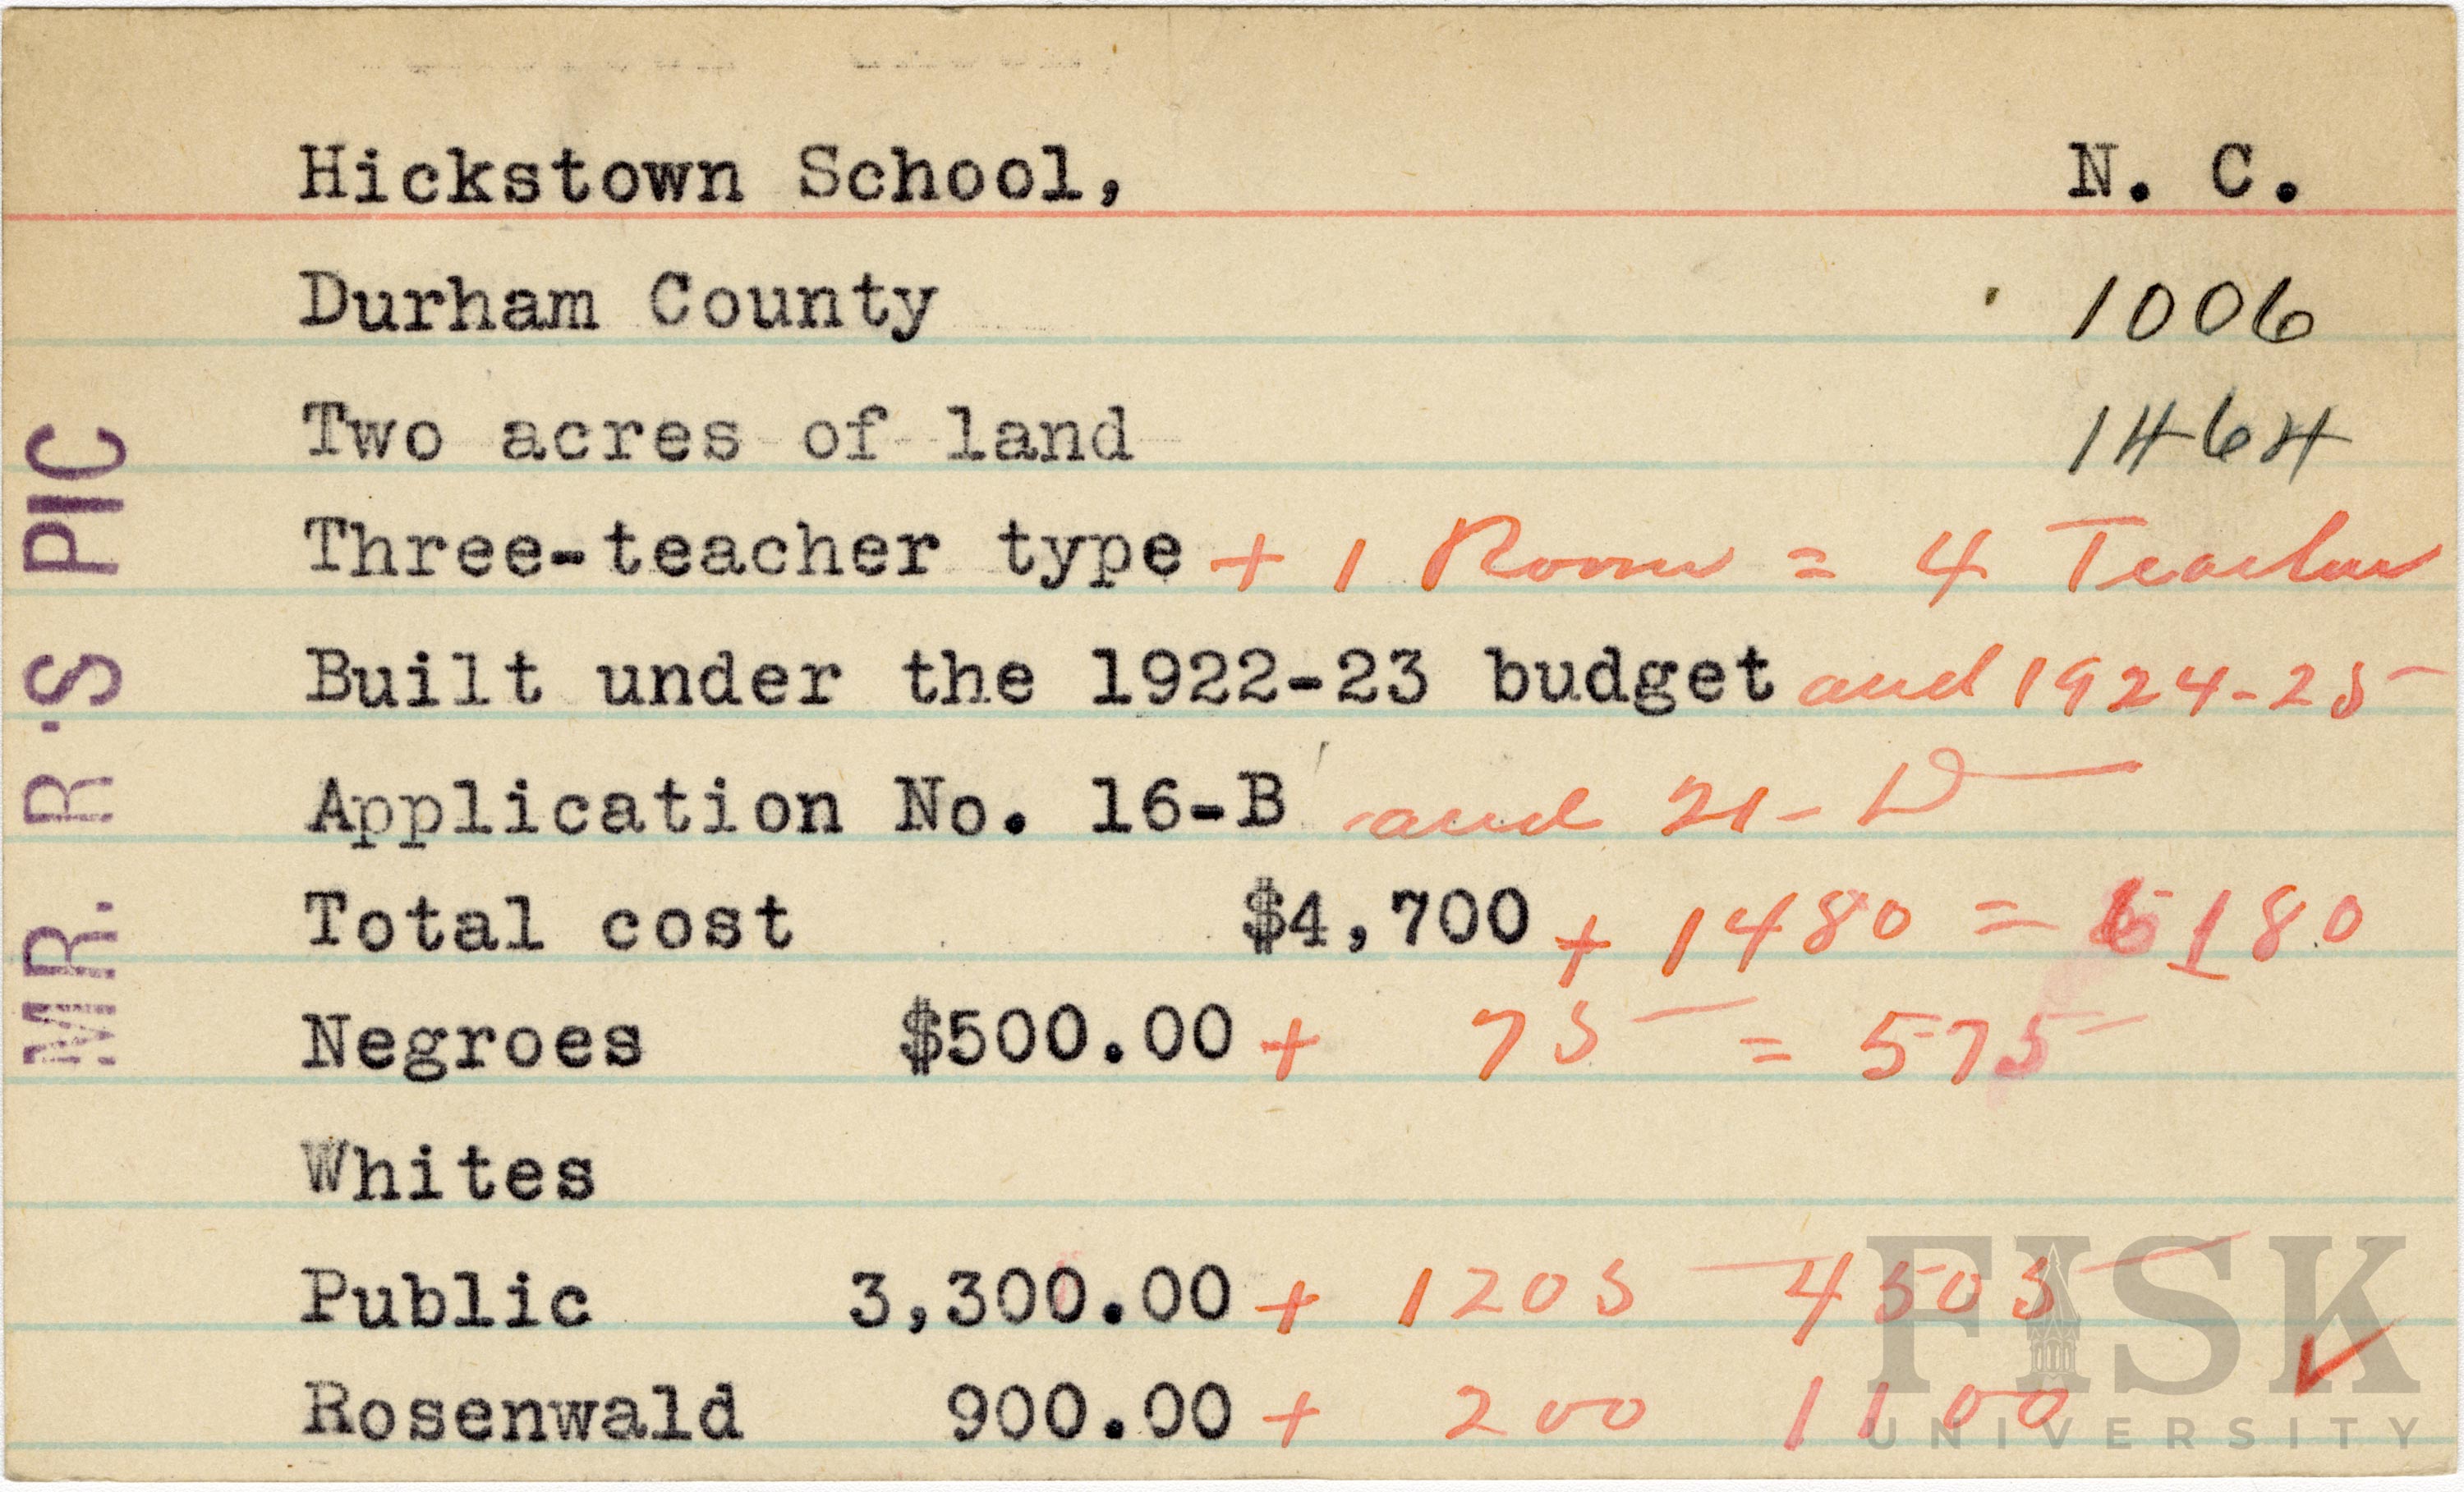 Hickstown School, N. C.
Durham County 1006
Two acres of land 1464
Three-teacher type + 1 Room = 4 Teacher
Built under the 1922-23 budget and 1924-25
Application No. 16-B and 21-D
Total cost $4,700 + 1480 = 6180
Negroes $500.00 + 75 = 575
Whites
Public 3,300.00 + 1205 4505
Rosenwald 900.00 + 200 1100 ✓
MR. R·S PIC
FISK
UNIVERSITY